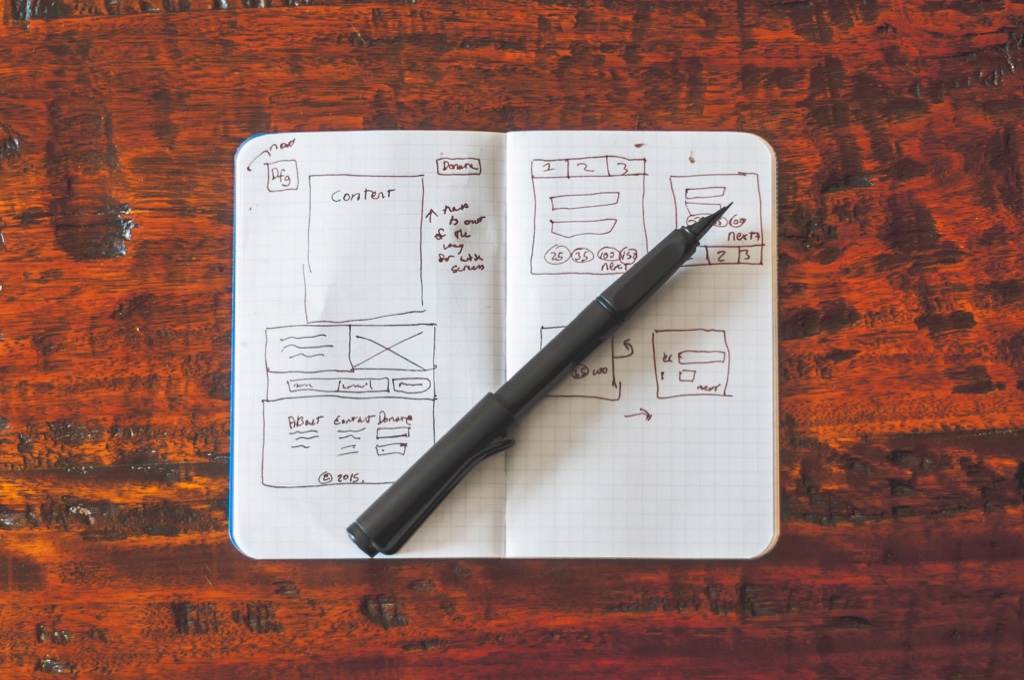 Dfg
Donate
Content
↑
is out
of the
way
for wide
screens
About Contact Donate
© 2015.
1 2 3
25 35 100 150
next
next
2 3
100
next